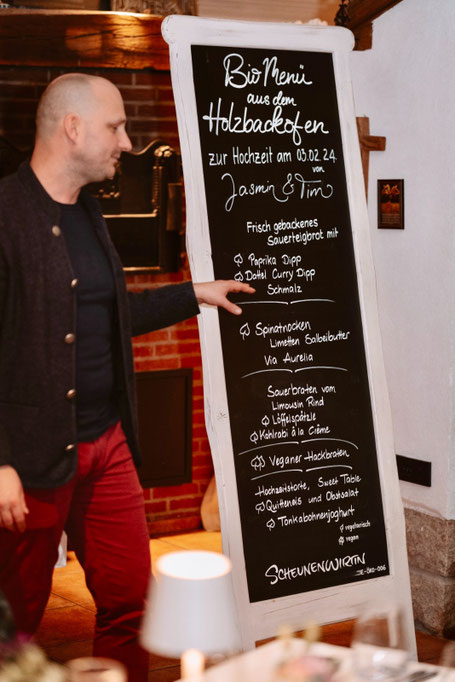 Bio Menü
aus dem
Holzbackofen
zur Hochzeit am 03.02.24
von
Jasmin & Tim
Frisch gebackenes
Sauerteigbrot mit
Paprika Dipp
Dattel Curry Dipp
Schmalz
Spinatnocken
Limetten Salbeibutter
Via Aurelia
Sauerbraten vom
Limousin Rind
Löffelspätzle
Kohlrabi à la Crème
Veganer Hackbraten
Hochzeitstorte, Sweet Table
Quitteneis und Obstsalat
Tonkabohnenjoghurt
vegetarisch
vegan
Scheunenwirtin
DE-ÖKO-006